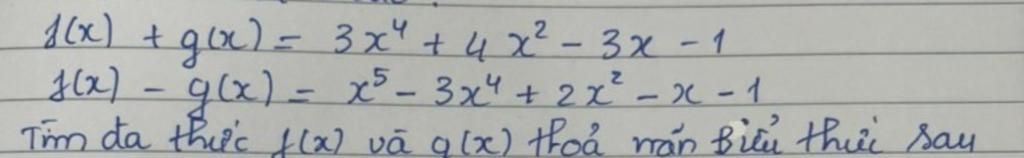 f(x) + g(x) = 3x⁴ + 4x² - 3x - 1
f(x) - g(x) = x⁵ - 3x⁴ + 2x² - x - 1
Tìm đa thức f(x) và g(x) thoả mãn biểu thức sau